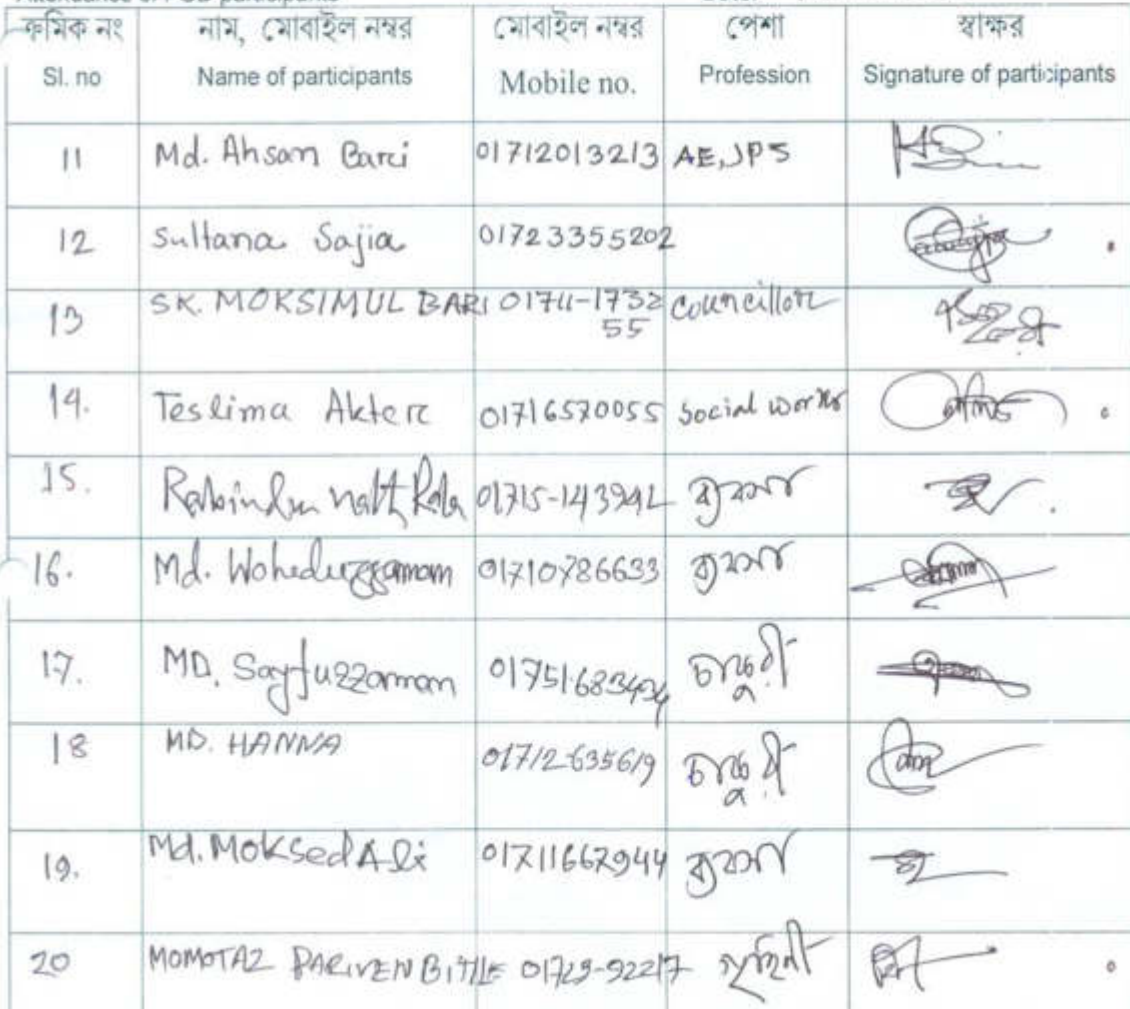 ক্রমিক নং নাম, মোবাইল নম্বর মোবাইল নম্বর পেশা স্বাক্ষর
Sl. no Name of participants Mobile no. Profession Signature of participants
11 Md. Ahsan Bari 01712013213 AE, JPS
12 Sultana Sajia 01723355202
13 SK. MOKSIMUL BARI 01711-1732 Councillor
55
14. Teslima Akter 01716570055 Social worker
15. 01715-143942 ব্যবসা
16. Md. Woheduzzaman 01710786633 ব্যবসা
17. MD. Sayfuzzaman চাকুরী
18 MD. HANNA 01712-635619 চাকুরী
19. Md. Moksed Ali 01711667944 ব্যবসা
20 MOMOTAZ PARIVEN BITTLE 01729-92217 গৃহিনী